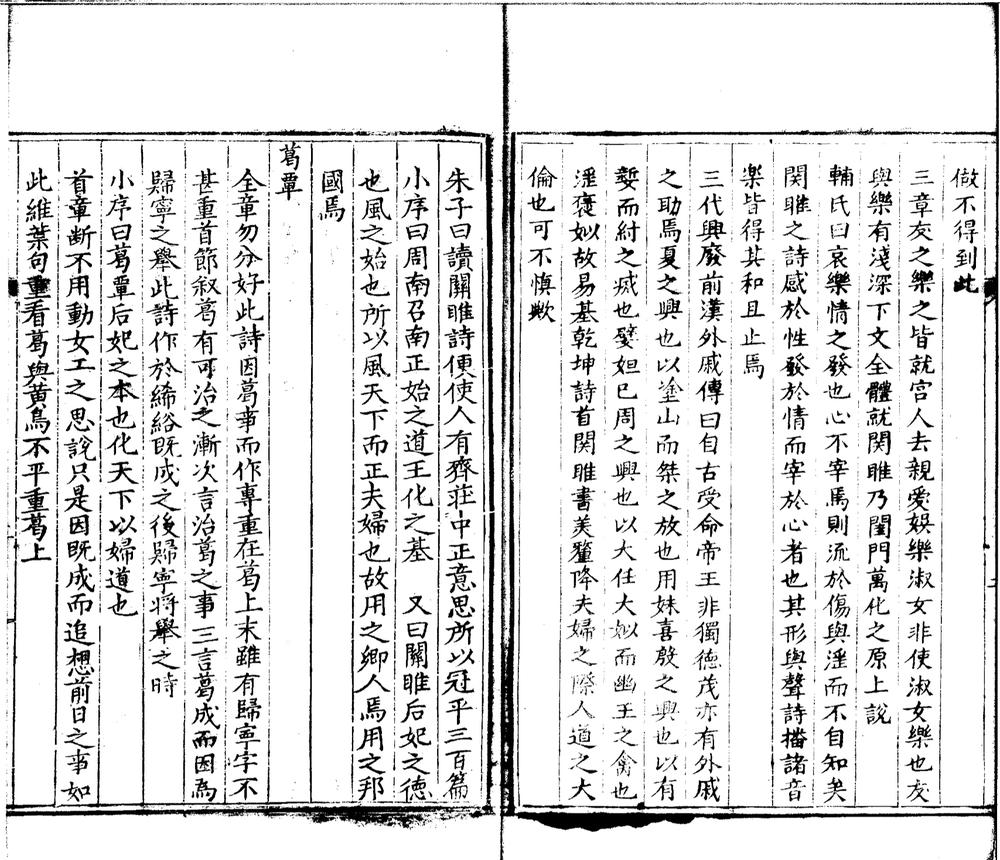 做不得到此
三章友之樂之皆就宫人去親愛娛樂淑女非使淑女樂也友
與樂有淺深下文全體就関雎乃閨門萬化之原上説
輔氏曰哀樂情之發也心不宰焉則流於傷與淫而不自知矣
関雎之詩感於性發於情而宰於心者也其形與聲詩播諸音
楽皆得其和且止焉
三代興廢前漢外戚傳曰自古受命帝王非獨德茂亦有外戚
之助焉夏之興也以塗山而桀之放也用妹喜殷之興也以有
㜪而紂之滅也嬖妲己周之興也以大任大姒而幽王之禽也
淫褒姒故易基乾坤詩首関雎書美釐降夫婦之際人道之大
倫也可不慎歟
朱子曰讀關雎詩便使人有齊莊中正意思所以冠乎三百篇
小序曰周南召南正始之道王化之基 又曰關雎后妃之德
也風之始也所以風天下而正夫婦也故用之鄉人焉用之邦
國焉
葛覃
全章勿分好此詩因葛事而作專重在葛上末雖有歸寧字不
甚重首節叙葛有可治之漸次言治葛之事三言葛成而因為
歸寧之舉此詩作於絺綌既成之後歸寧将舉之時
小序曰葛覃后妃之本也化天下以婦道也
首章断不用動女工之思説只是因既成而追想前日之事如
此維葉句重看葛與黄鳥不平重葛上